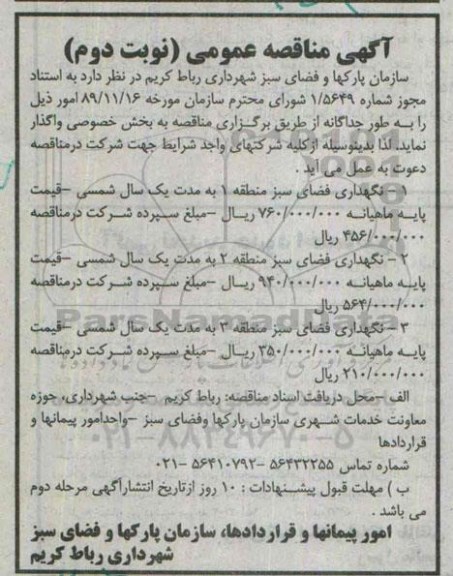 آگهی مناقصه عمومی (نوبت دوم)
سازمان پارکها و فضای سبز شهرداری رباط کریم در نظر دارد به استناد
مجوز شماره ۱/۵۶۴۹ شورای محترم سازمان مورخه ۸۹/۱۱/۱۶ امور ذیل
را به طور جداگانه از طریق برگزاری مناقصه به بخش خصوصی واگذار
نماید. لذا بدینوسیله از کلیه شرکتهای واجد شرایط جهت شرکت درمناقصه
دعوت به عمل می آید .
۱ – نگهداری فضای سبز منطقه ۱ به مدت یک سال شمسی –قیمت
پایه ماهیانه ۷۶۰/۰۰۰/۰۰۰ ریال –مبلغ سپرده شرکت درمناقصه
۴۵۶/۰۰۰/۰۰۰ ریال
۲ – نگهداری فضای سبز منطقه ۲ به مدت یک سال شمسی –قیمت
پایه ماهیانه ۹۴۰/۰۰۰/۰۰۰ ریال –مبلغ سپرده شرکت درمناقصه
۵۶۴/۰۰۰/۰۰۰ ریال
ParsNamadData
۳ – نگهداری فضای سبز منطقه ۳ به مدت یک سال شمسی –قیمت
پایه ماهیانه ۳۵۰/۰۰۰/۰۰۰ ریال –مبلغ سپرده شرکت درمناقصه
۲۱۰/۰۰۰/۰۰۰ ریال
الف –محل دریافت اسناد مناقصه: رباط کریم –جنب شهرداری، حوزه
معاونت خدمات شهری سازمان پارکها وفضای سبز –واحدامور پیمانها و
قراردادها
۰۲۱-۸۸۳۴۹۶۷۰-۵
شماره تماس ۵۶۴۳۲۲۵۵ –۵۶۴۱۰۷۹۲ –۰۲۱
ب ) مهلت قبول پیشنهادات : ۱۰ روز ازتاریخ انتشارآگهی مرحله دوم
می باشد .
امور پیمانها و قراردادها، سازمان پارکها و فضای سبز
شهرداری رباط کریم